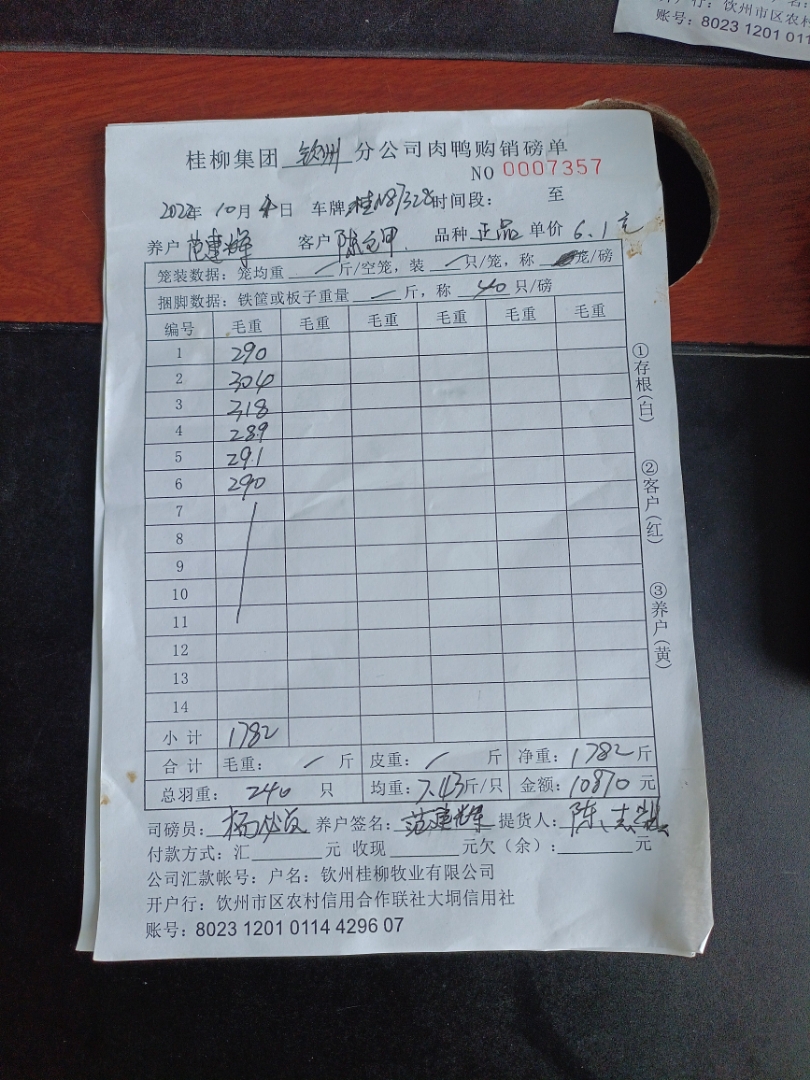 开户行：钦州市区农村
账号：8023 1201 011
桂柳集团 钦州 分公司肉鸭购销磅单
NO 0007357
2022年 10月 4日 车牌：桂N87328 时间段： 至
养户 范建辉 客户 品种 正品 单价 6.1元
笼装数据：笼均重 / 斤/空笼，装 / 只/笼，称 笼/磅
捆脚数据：铁筐或板子重量 / 斤，称 40 只/磅
编号 毛重 毛重 毛重 毛重 毛重 毛重
1 290
2 304
3 318
4 289
5 291
6 290
7
8
9
10
11
12
13
14
小计 1782
合计 毛重： / 斤 皮重： / 斤 净重：1782斤
总羽重： 240 只 均重：7.43斤/只 金额：10870 元
司磅员： 养户签名：范建辉 提货人：陈
付款方式：汇 元 收现 元欠（余）： 元
公司汇款帐号：户名：钦州桂柳牧业有限公司
开户行：钦州市区农村信用合作联社大垌信用社
账号：8023 1201 0114 4296 07
①存根（白）
②客户（红）
③养户（黄）